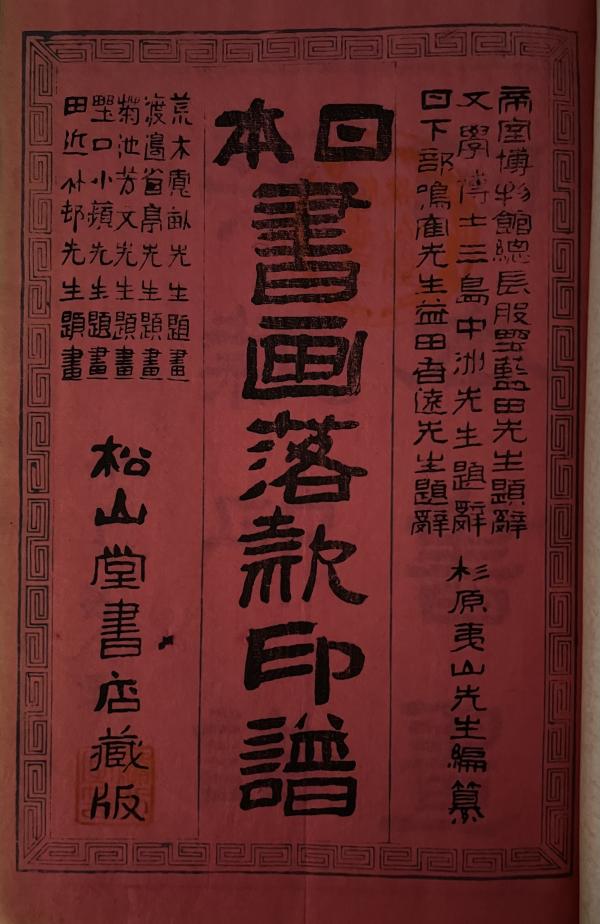 帝室博物館總長股野藍田先生題辭
文學博士三島中洲先生題辭
日下部鳴鶴先生益田香遠先生題辭
杉原夷山先生編纂
日本
書画落款印譜
荒木寛畝先生題畫
渡邊省亭先生題畫
菊池芳文先生題畫
野口小蘋先生題畫
田近竹邨先生題畫
松山堂書店藏版